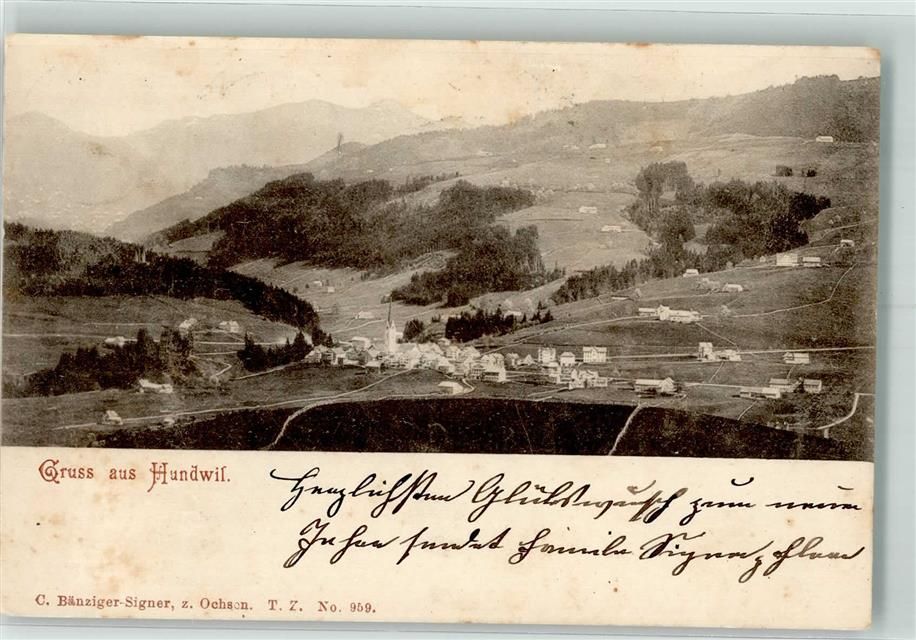 Gruss aus Hundwil.
Herzlichsten Glückswunsch zum neuen
Jahr sendet Familie Signer z.
C. Bänziger-Signer, z. Ochsen. T. Z. No. 959.